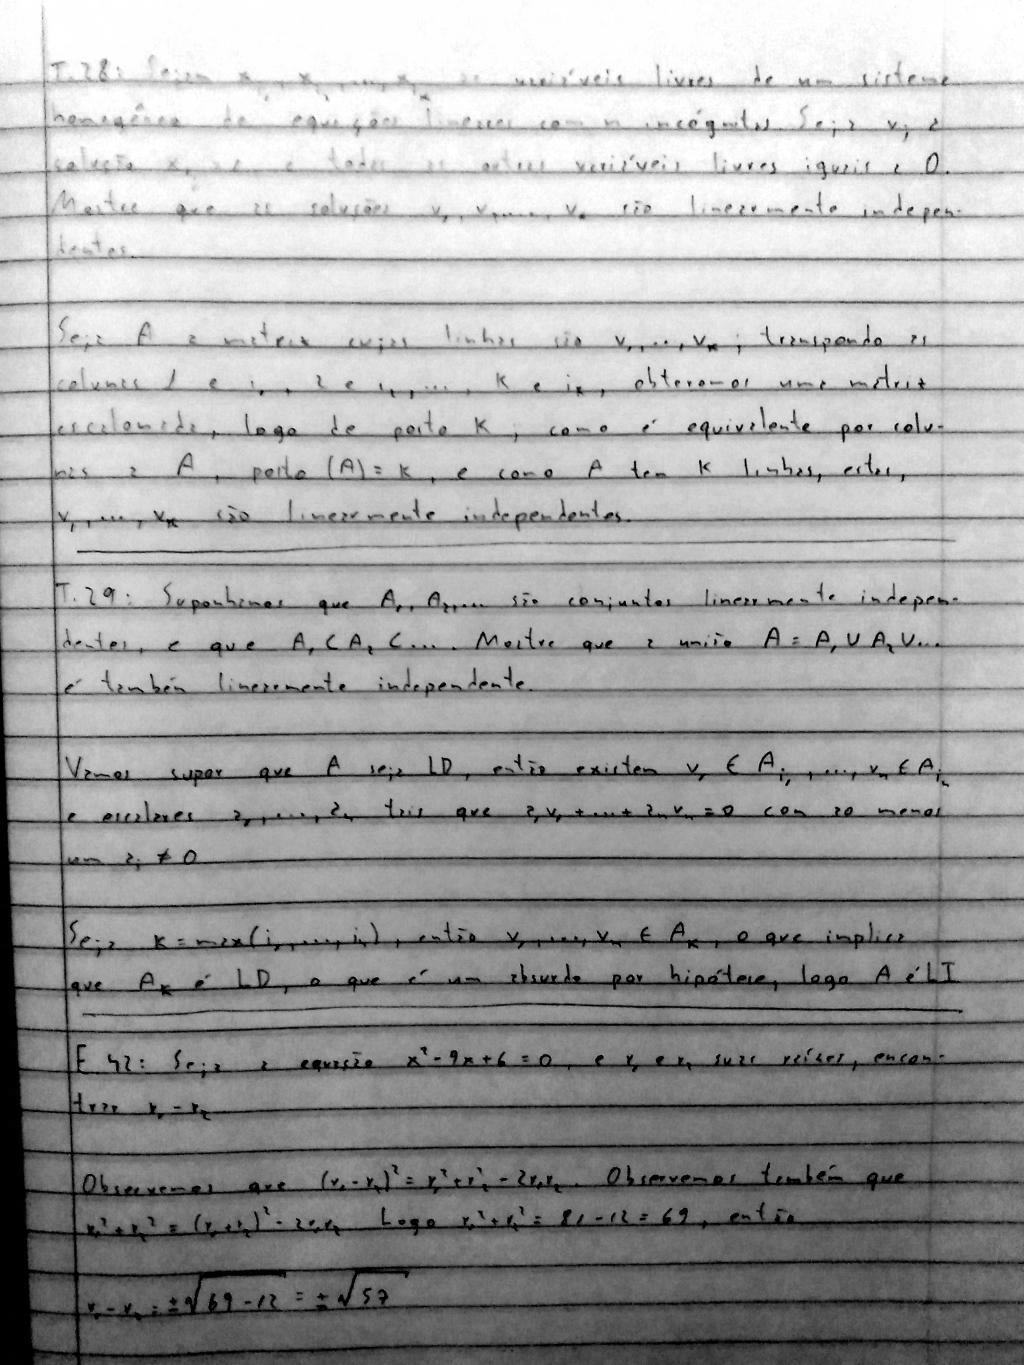 T.28: Sejam x_i₁, x_i₂, ..., x_iₖ as variáveis livres de um sistema
homogêneo de equações lineares com n incógnitas. Seja vⱼ a
solução e todas as outras variáveis livres iguais a 0.
Mostre que as soluções v₁, v₂, ..., vₖ são linearmente indepen-
dentes.
Seja A a matriz cujas linhas são v₁, ..., vₖ; transpondo as
colunas 1 e i₁, 2 e i₂, ..., K e iₖ, obteremos uma matriz
escalonada, logo de posto K; como é equivalente por colu-
nas a A, posto (A) = K, e como A tem K linhas, estas,
v₁, ..., vₖ são linearmente independentes.
T.29: Suponhamos que A₁, A₂, ... são conjuntos linearmente indepen-
dentes, e que A₁ ⊂ A₂ ⊂ .... Mostre que a união A = A₁ ∪ A₂ ∪ ...
é também linearmente independente.
Vamos supor que A seja LD, então existem v₁ ∈ A_i₁, ..., vₙ ∈ A_iₙ
e escalares a₁, ..., aₙ tais que a₁v₁ + ... + aₙvₙ = 0 com ao menos
um aᵢ ≠ 0
Seja K = max(i₁, ..., iₙ), então v₁, ..., vₙ ∈ Aₖ, o que implica
que Aₖ é LD, o que é um absurdo por hipótese, logo A é LI
E 42: Seja a equação x² - 9x + 6 = 0, e r₁ e r₂ suas raízes, encon-
trar r₁ - r₂
Observemos que (r₁ - r₂)² = r₁² + r₂² - 2r₁r₂. Observemos também que
r₁² + r₂² = (r₁ + r₂)² - 2r₁r₂ Logo r₁² + r₂² = 81 - 12 = 69, então
r₁ - r₂ = ±√69 - 12 = ±√57